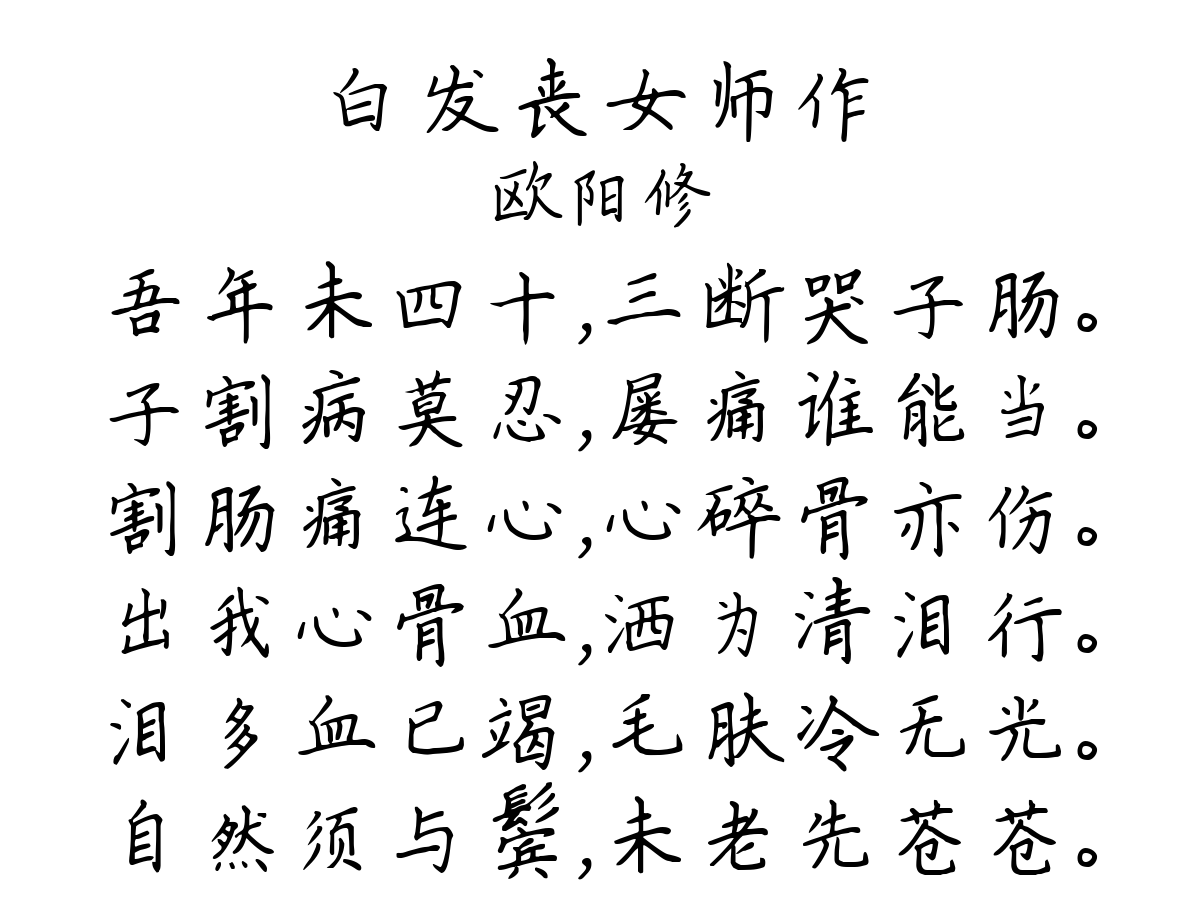 白发丧女师作
欧阳修
吾年未四十,三断哭子肠。
子割病莫忍,屡痛谁能当。
割肠痛连心,心碎骨亦伤。
出我心骨血,洒为清泪行。
泪多血已竭,毛肤冷无光。
自然须与鬓,未老先苍苍。